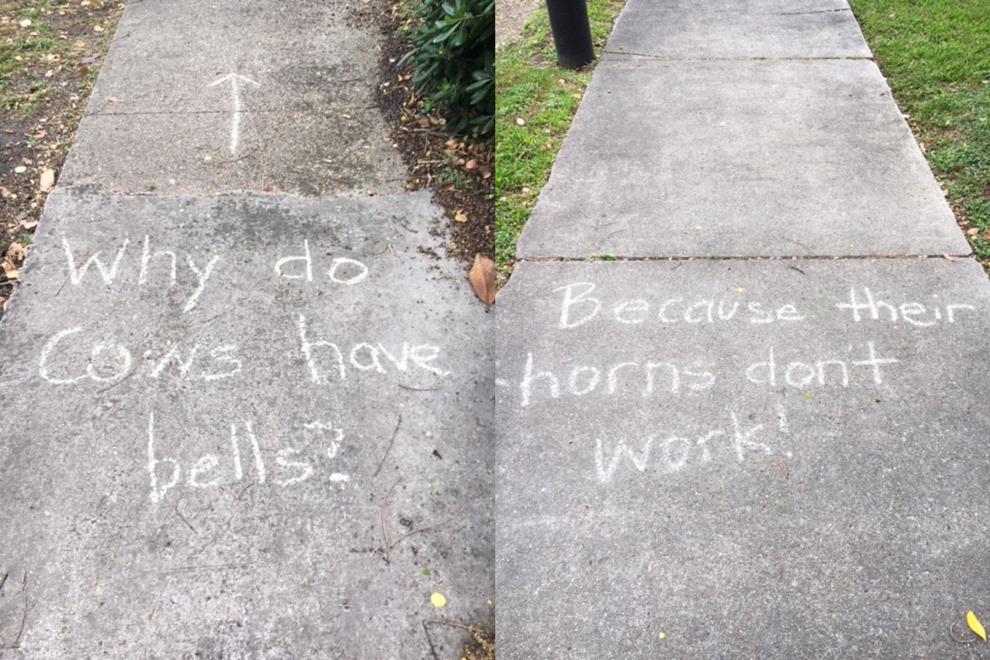 Why do
Cows have
bells?
Because their
horns don't
work!